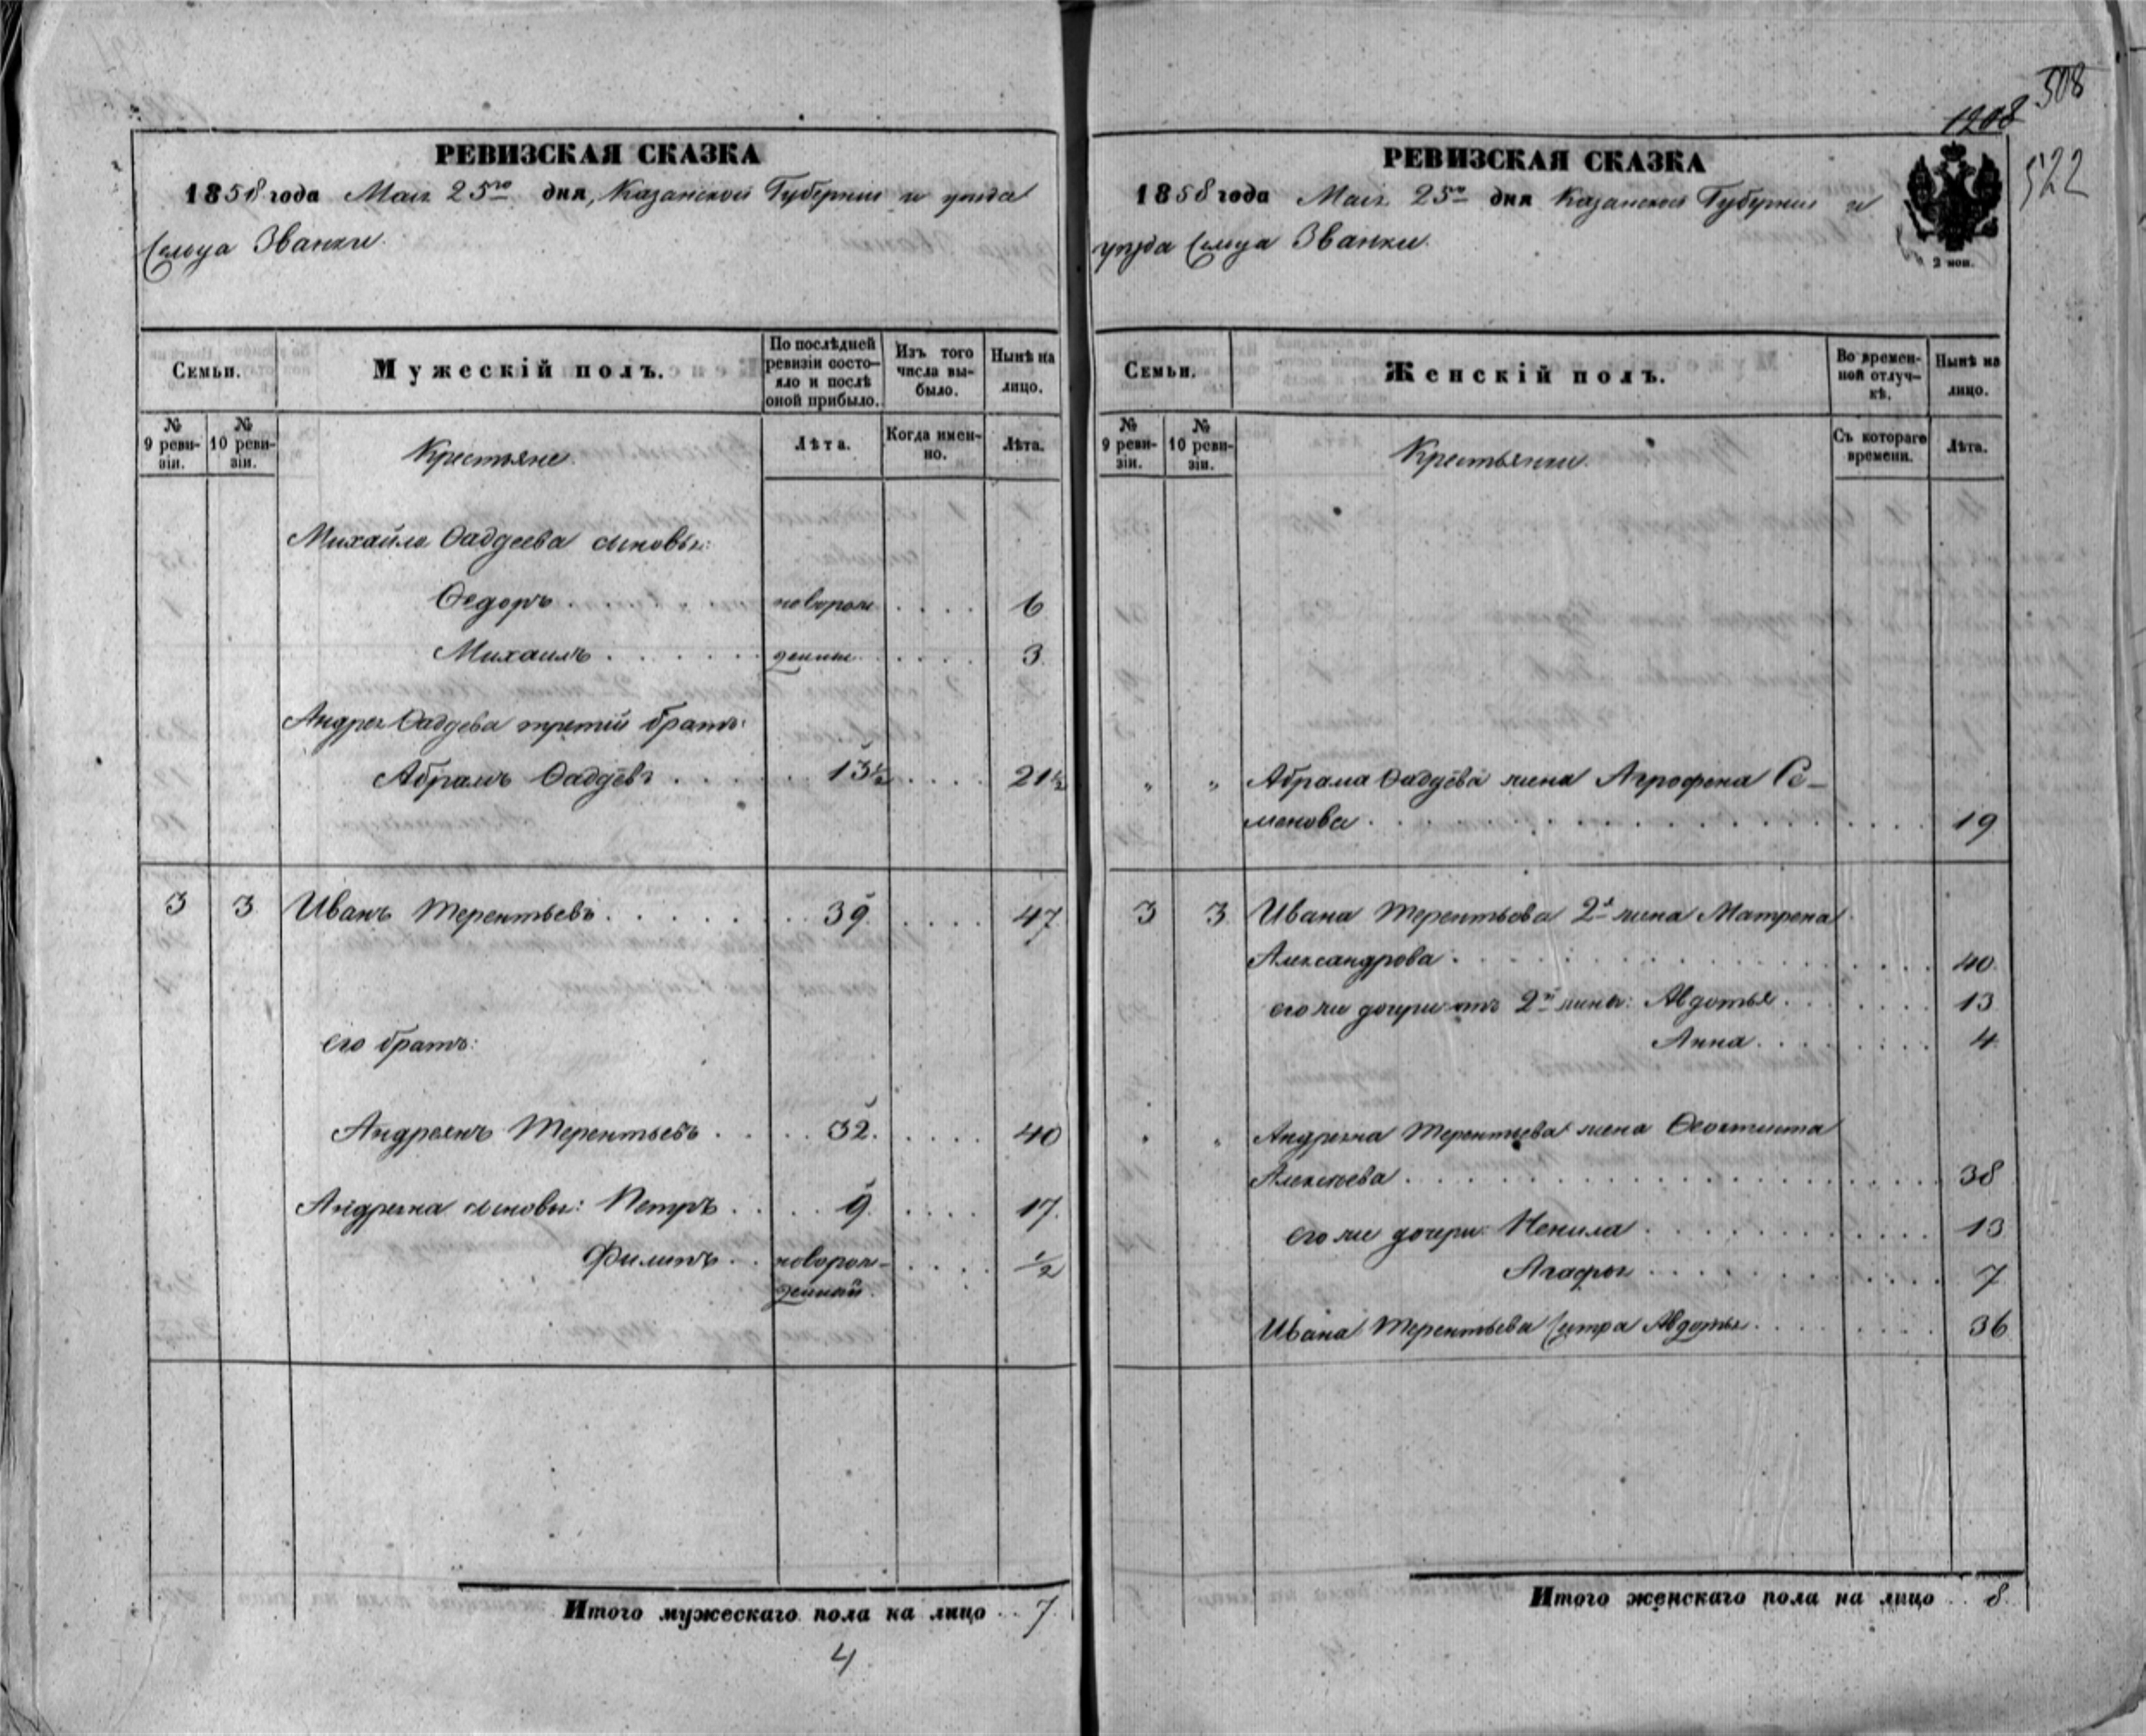 508
1208
522
РЕВИЗСКАЯ СКАЗКА
1858 года Маія 25го дня, Казанской Губерніи и уѣзда
Сельца Званки.
Семьи.
Мужескій полъ.
По послѣдней ревизіи состояло и послѣ оной прибыло.
Изъ того числа выбыло.
Нынѣ на лицо.
№ 9 ревизіи.
№ 10 ревизіи.
Крестьяне.
Лѣта.
Когда именно.
Лѣта.
Михайла Ѳаддеева сыновья:
Ѳедоръ . . . новорож . . . . 6
Михаилъ . . . . . . денные . . . . 3.
Андрея Ѳаддева третій братъ:
Абрамъ Ѳаддѣвъ . . . . . 13½ . . . . 21½
3 3 Иванъ Терентьевъ . . . . . . 39. . . . . 47.
его братъ:
Андреянъ Терентьевъ . . . . 32. . . . . 40
Андреяна сыновья: Петръ . . . . 9. . . . . 17.
Филипъ . . новорож- . . . . ½
денный.
Итого мужескаго пола на лицо . . 7.
4
РЕВИЗСКАЯ СКАЗКА
1858 года Маія 25го дня Казанской Губерніи и
уѣзда Сельца Званки.
2 коп.
Семьи.
Женскій полъ.
Во временной отлучкѣ.
Нынѣ на лицо.
№ 9 ревизіи.
№ 10 ревизіи.
Крестьянки.
Съ котораго времени.
Лѣта.
" " Абрама Ѳаддѣва жена Агрофена Се-
менова . . . . . . . . . . . . 19
3 3. Ивана Терентьева 2я жена Матрена
Александрова . . . . . . . . . . 40.
его же дочери отъ 2й жены: Авдотья . . . . . . 13
Анна . . . . . . . 4.
" " Андреяна Терентьева жена Ѳеоктиста
Алексѣева . . . . . . . . . . . . 38
его же дочери: Ненила . . . . . . . . . . 13
Агафья . . . . . . . . . . 7
Ивана Терентьева Сестра Авдотья . . . . . . . . 36
Итого женскаго пола на лицо . . 8.